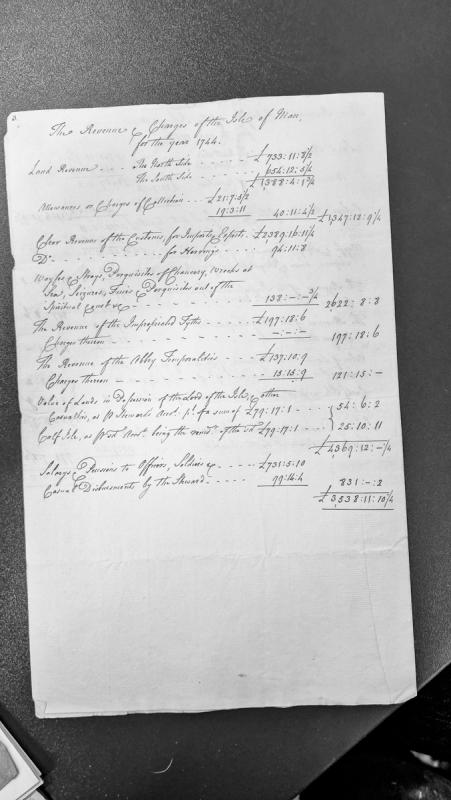 3.
The Revenue & Charges of the Isle of Man,
for the year 1744.
Land Revenue - - - The North Side - - - - - £733:11:8½
The South Side - - - - - 654:12:5¼
£1388:4:1¾
Allowances or Charges of Collection - - - £21:7:5½
19:3:11 40:11:4½ £1347:12:9¼
Clear Revenue of the Customs, for Imports & Exports. £2389:16:11¼
Do. - - - - - - for Herrings - - - - 94:11:8
Wayfes & Strays, Perquisites of Chancery, Wrecks at
Sea, Seizures, Fines & Perquisites out of the
Spiritual Court &c - - - - - - - 138:-:-¾ 2622:8:8
The Revenue of the Impropriated Tyths - - - - £197:18:6
Charges thereon - - - - - - - - - -:-:- 197:18:6
The Revenue of the Abby Temporalities - - - - £137:10:9
Charges thereon - - - - - - - - 15:15:9 121:15:-
Value of Lands in Possession of the Lord of the Isle, & other
Casualties, as P Stewards Acct. pt. of a sum of £79:17:1 - - - 54:6:2
Calf Isle, as P Sd. Acct. being the remdr. of the sd. £79:17:1 - - - 25:10:11
£4369:12:-¼
Salarys & Pensions to Officers, Soldiers &c. - - - - £731:5:10
Casual Disbursements by the Steward - - - - - 99:14:4 831:-:2
£3538:11:10¼